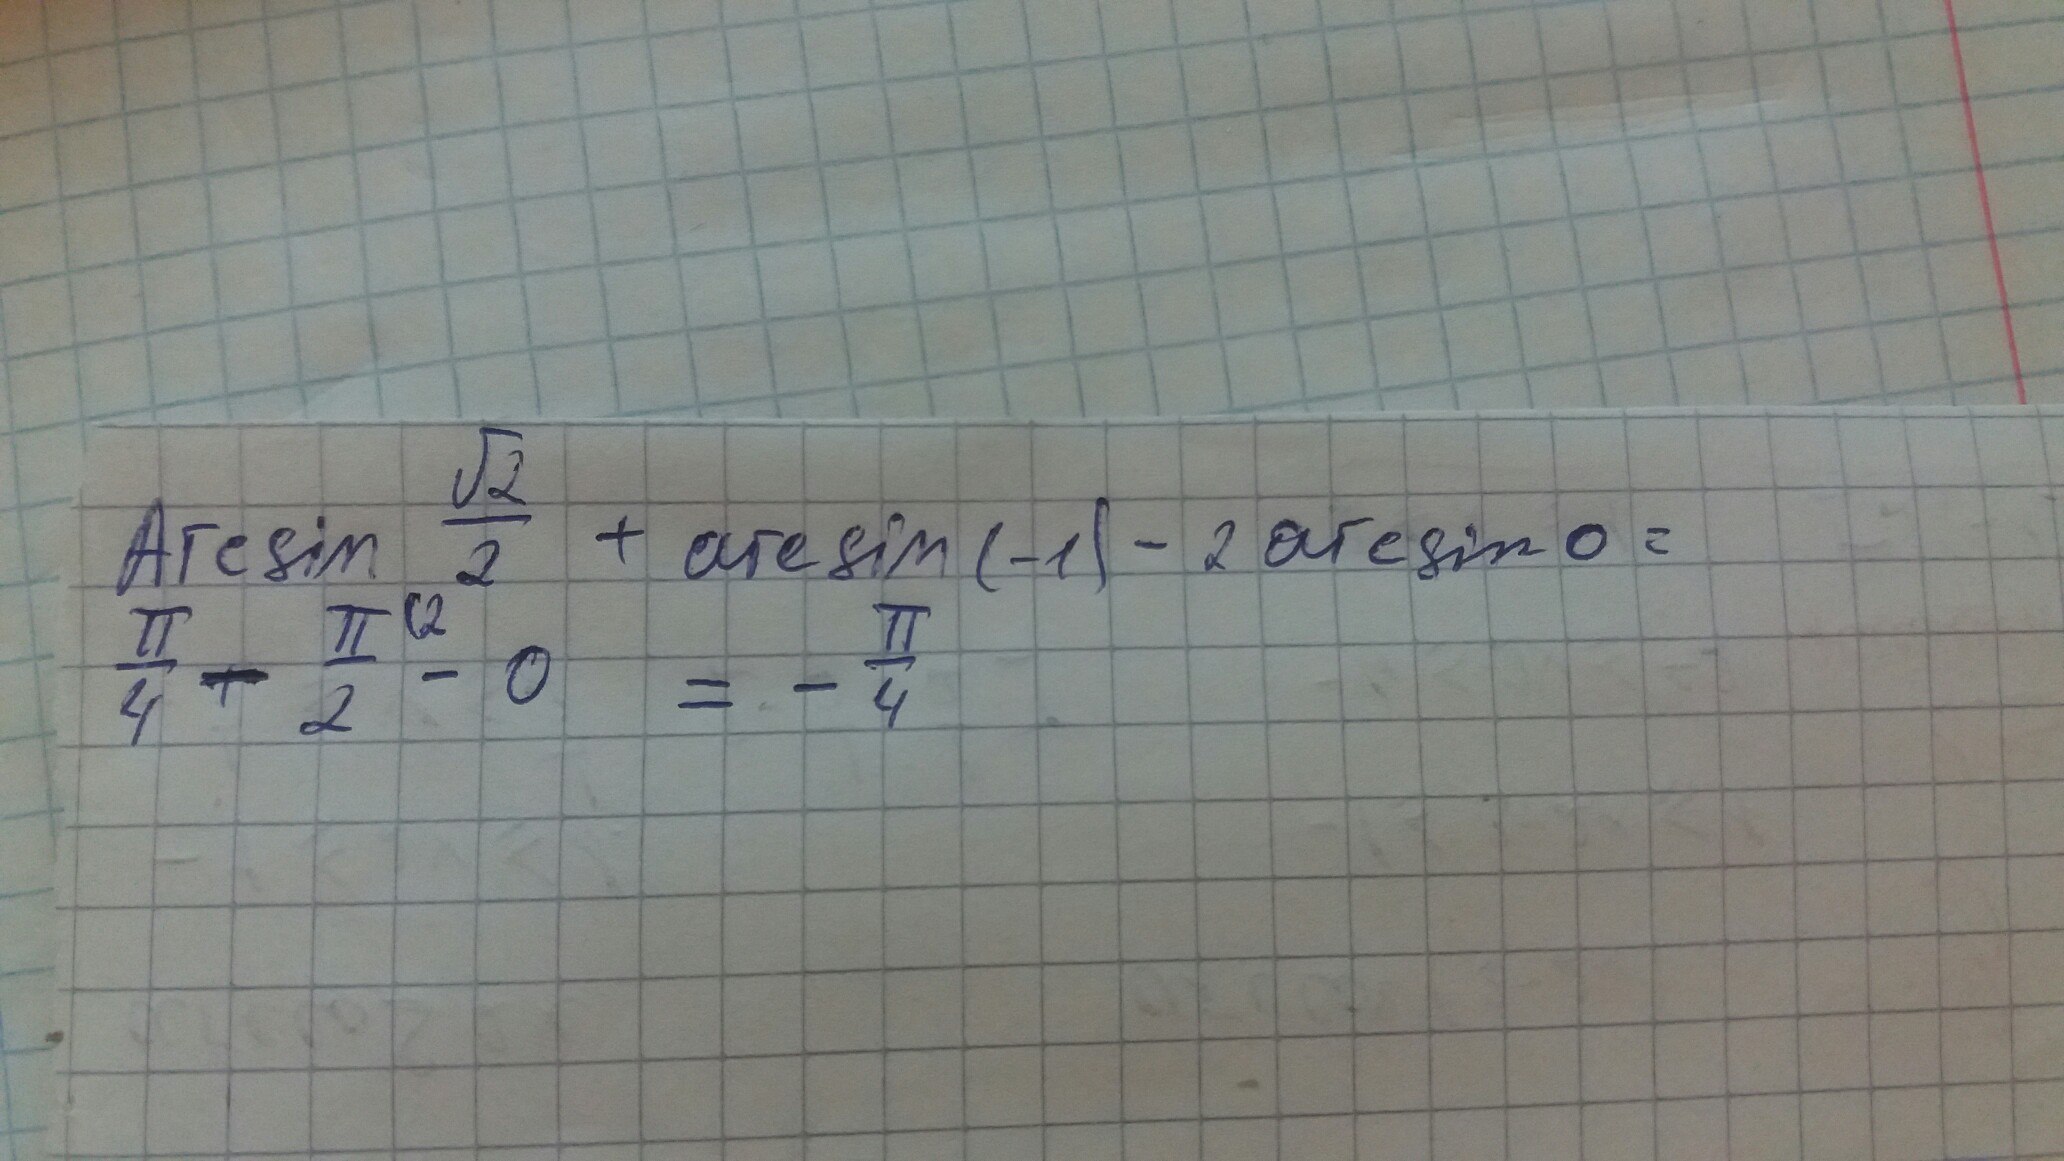 Arcsin √2/2 + arcsin (-1) - 2 arcsin 0 =
π/4 - π/2 (2 - 0 = - π/4